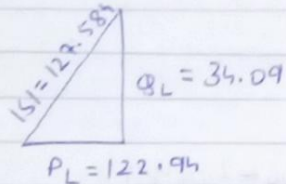 |S| = 127.584
Q_L = 34.09
P_L = 122.94